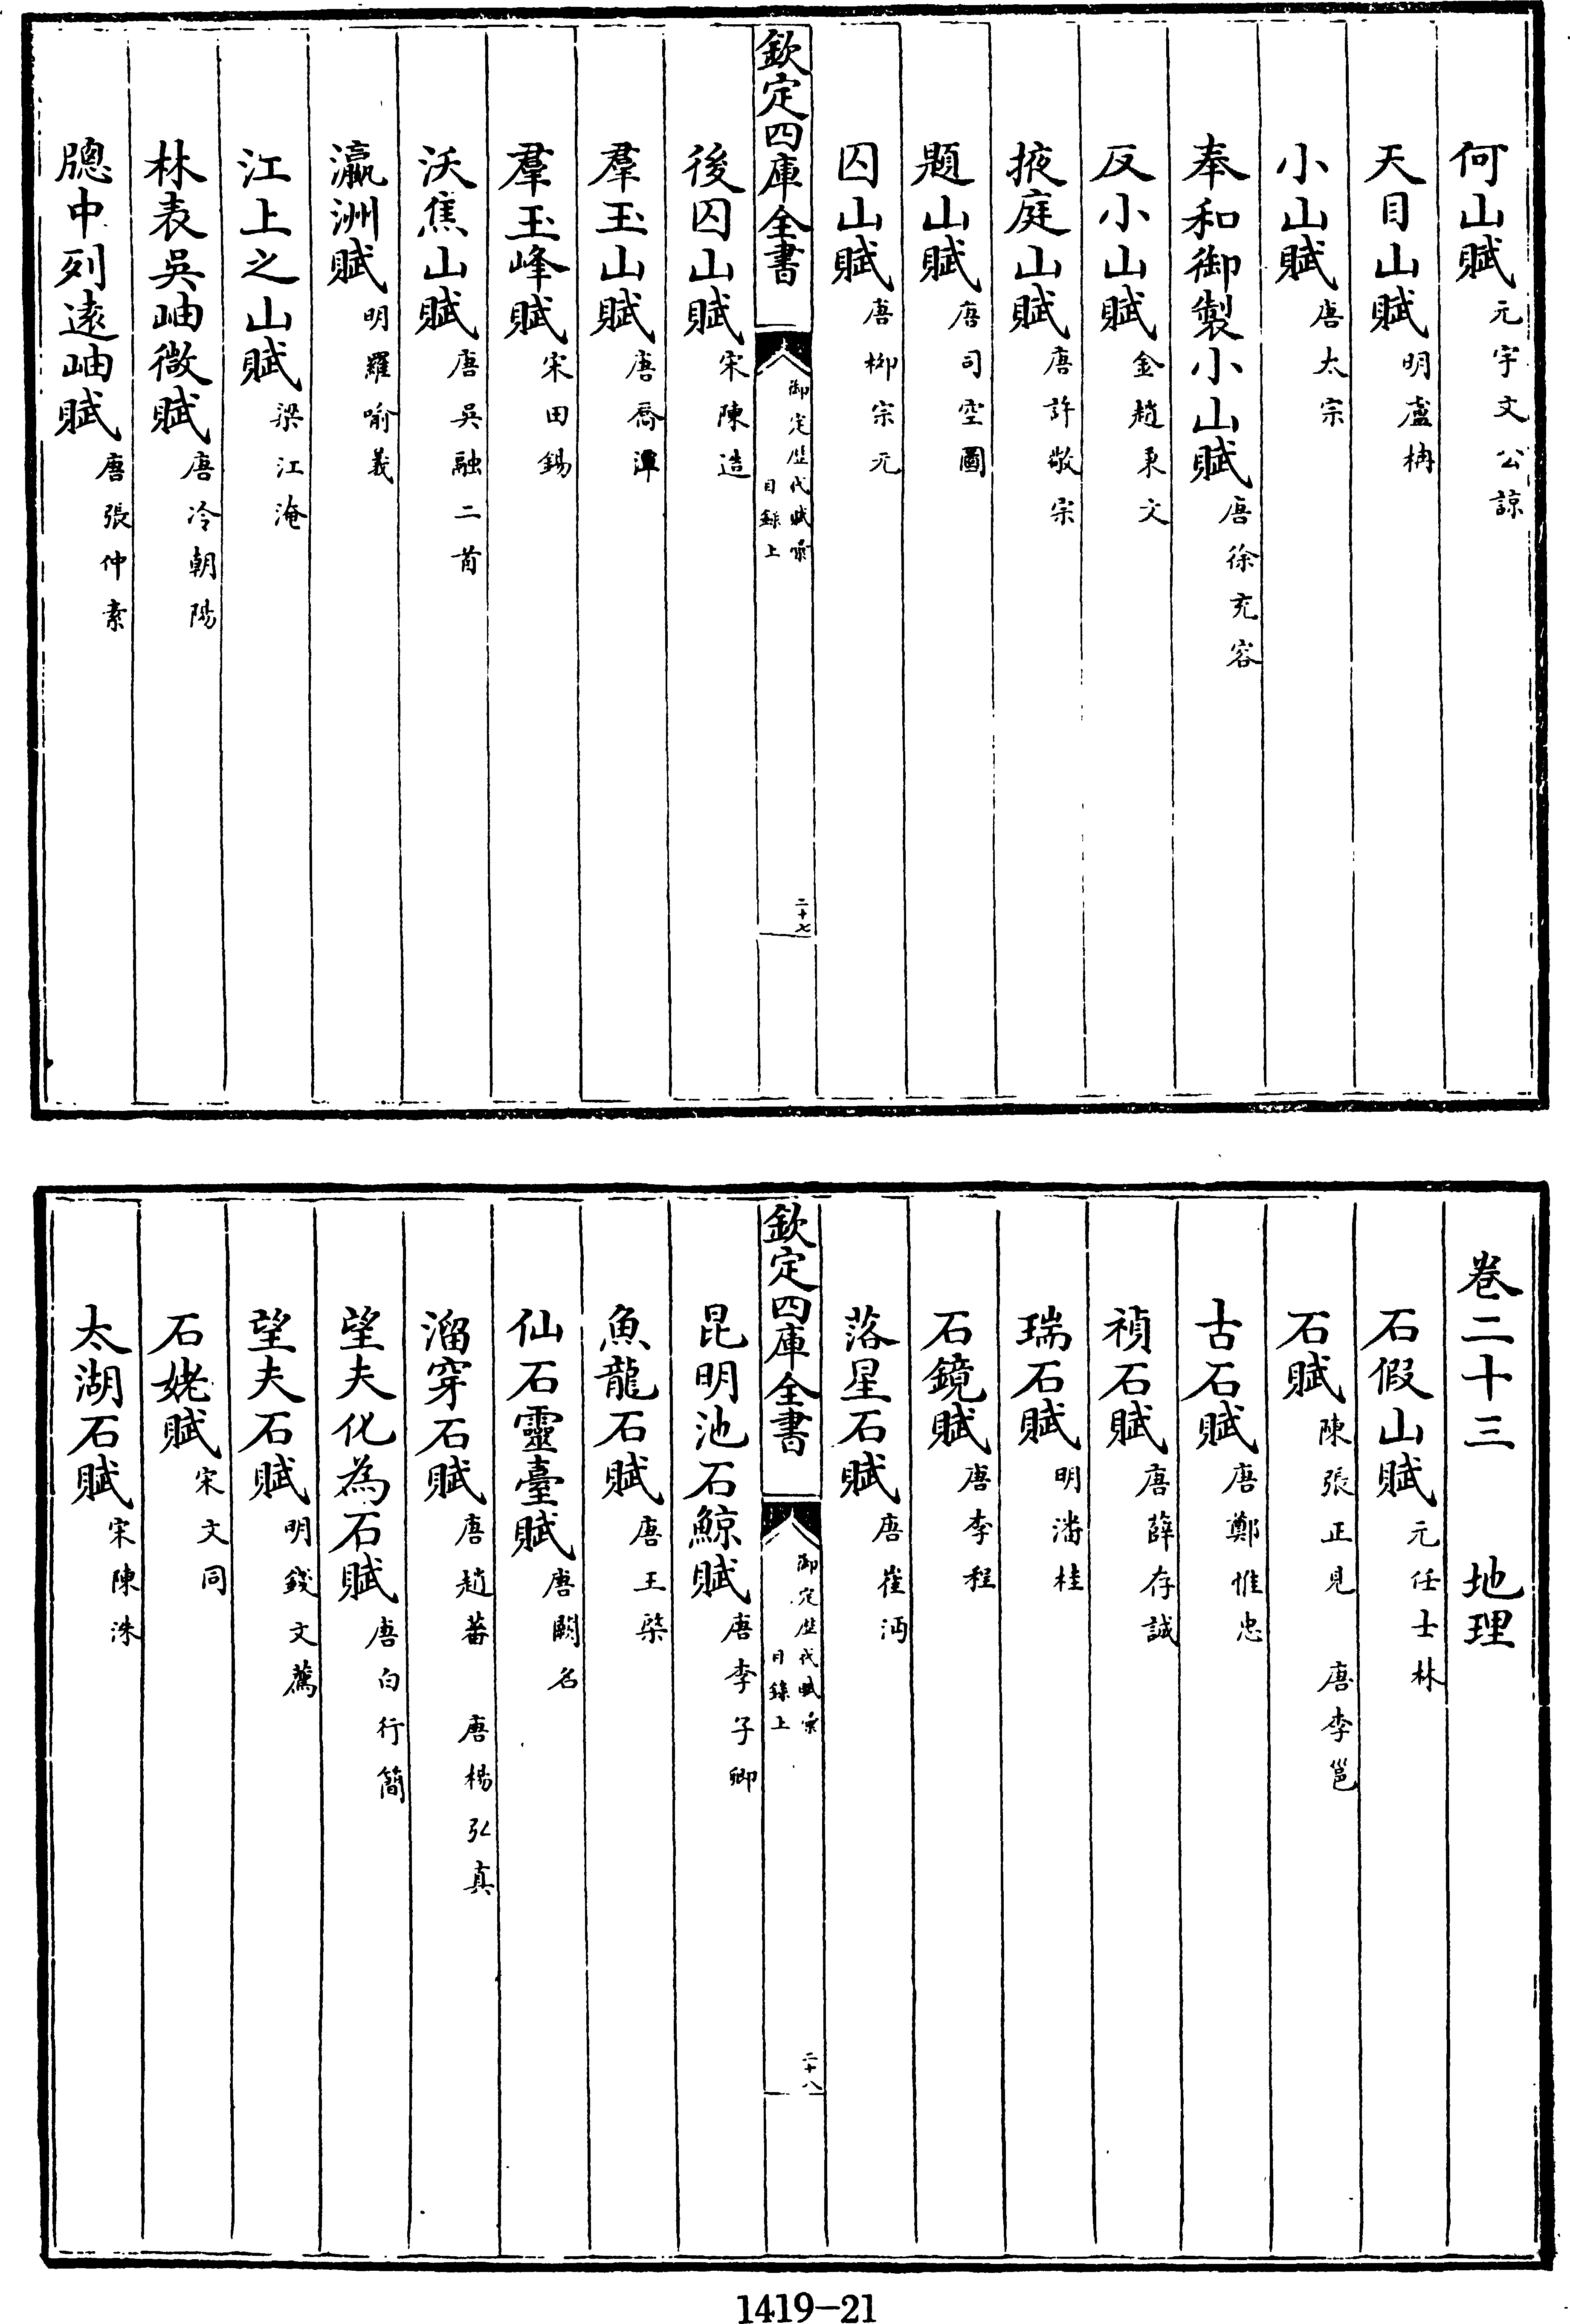 何山賦元宇文公諒
天目山賦明盧柟
小山賦唐太宗
奉和御製小山賦唐徐充容
反小山賦金趙秉文
掖庭山賦唐許敬宗
題山賦唐司空圖
囚山賦唐柳宗元
欽定四庫全書
御定歴代賦彙
目録上
二十七
後囚山賦宋陳造
羣玉山賦唐喬潭
羣玉峰賦宋田錫
沃焦山賦唐吳融二首
瀛洲賦明羅喻義
江上之山賦梁江淹
林表吳岫微賦唐冷朝陽
牕中列遠岫賦唐張仲素
卷二十三 地理
石假山賦元任士林
石賦陳張正見 唐李邕
古石賦唐鄭惟忠
禎石賦唐薛存誠
瑞石賦明潘桂
石鏡賦唐李程
落星石賦唐崔沔
欽定四庫全書
御定歴代賦彙
目録上
二十八
昆明池石鯨賦唐李子卿
魚龍石賦唐王棨
仙石靈臺賦唐闕名
溜穿石賦唐趙蕃 唐楊弘真
望夫化為石賦唐白行簡
望夫石賦明錢文薦
石姥賦宋文同
太湖石賦宋陳洙
1419-21